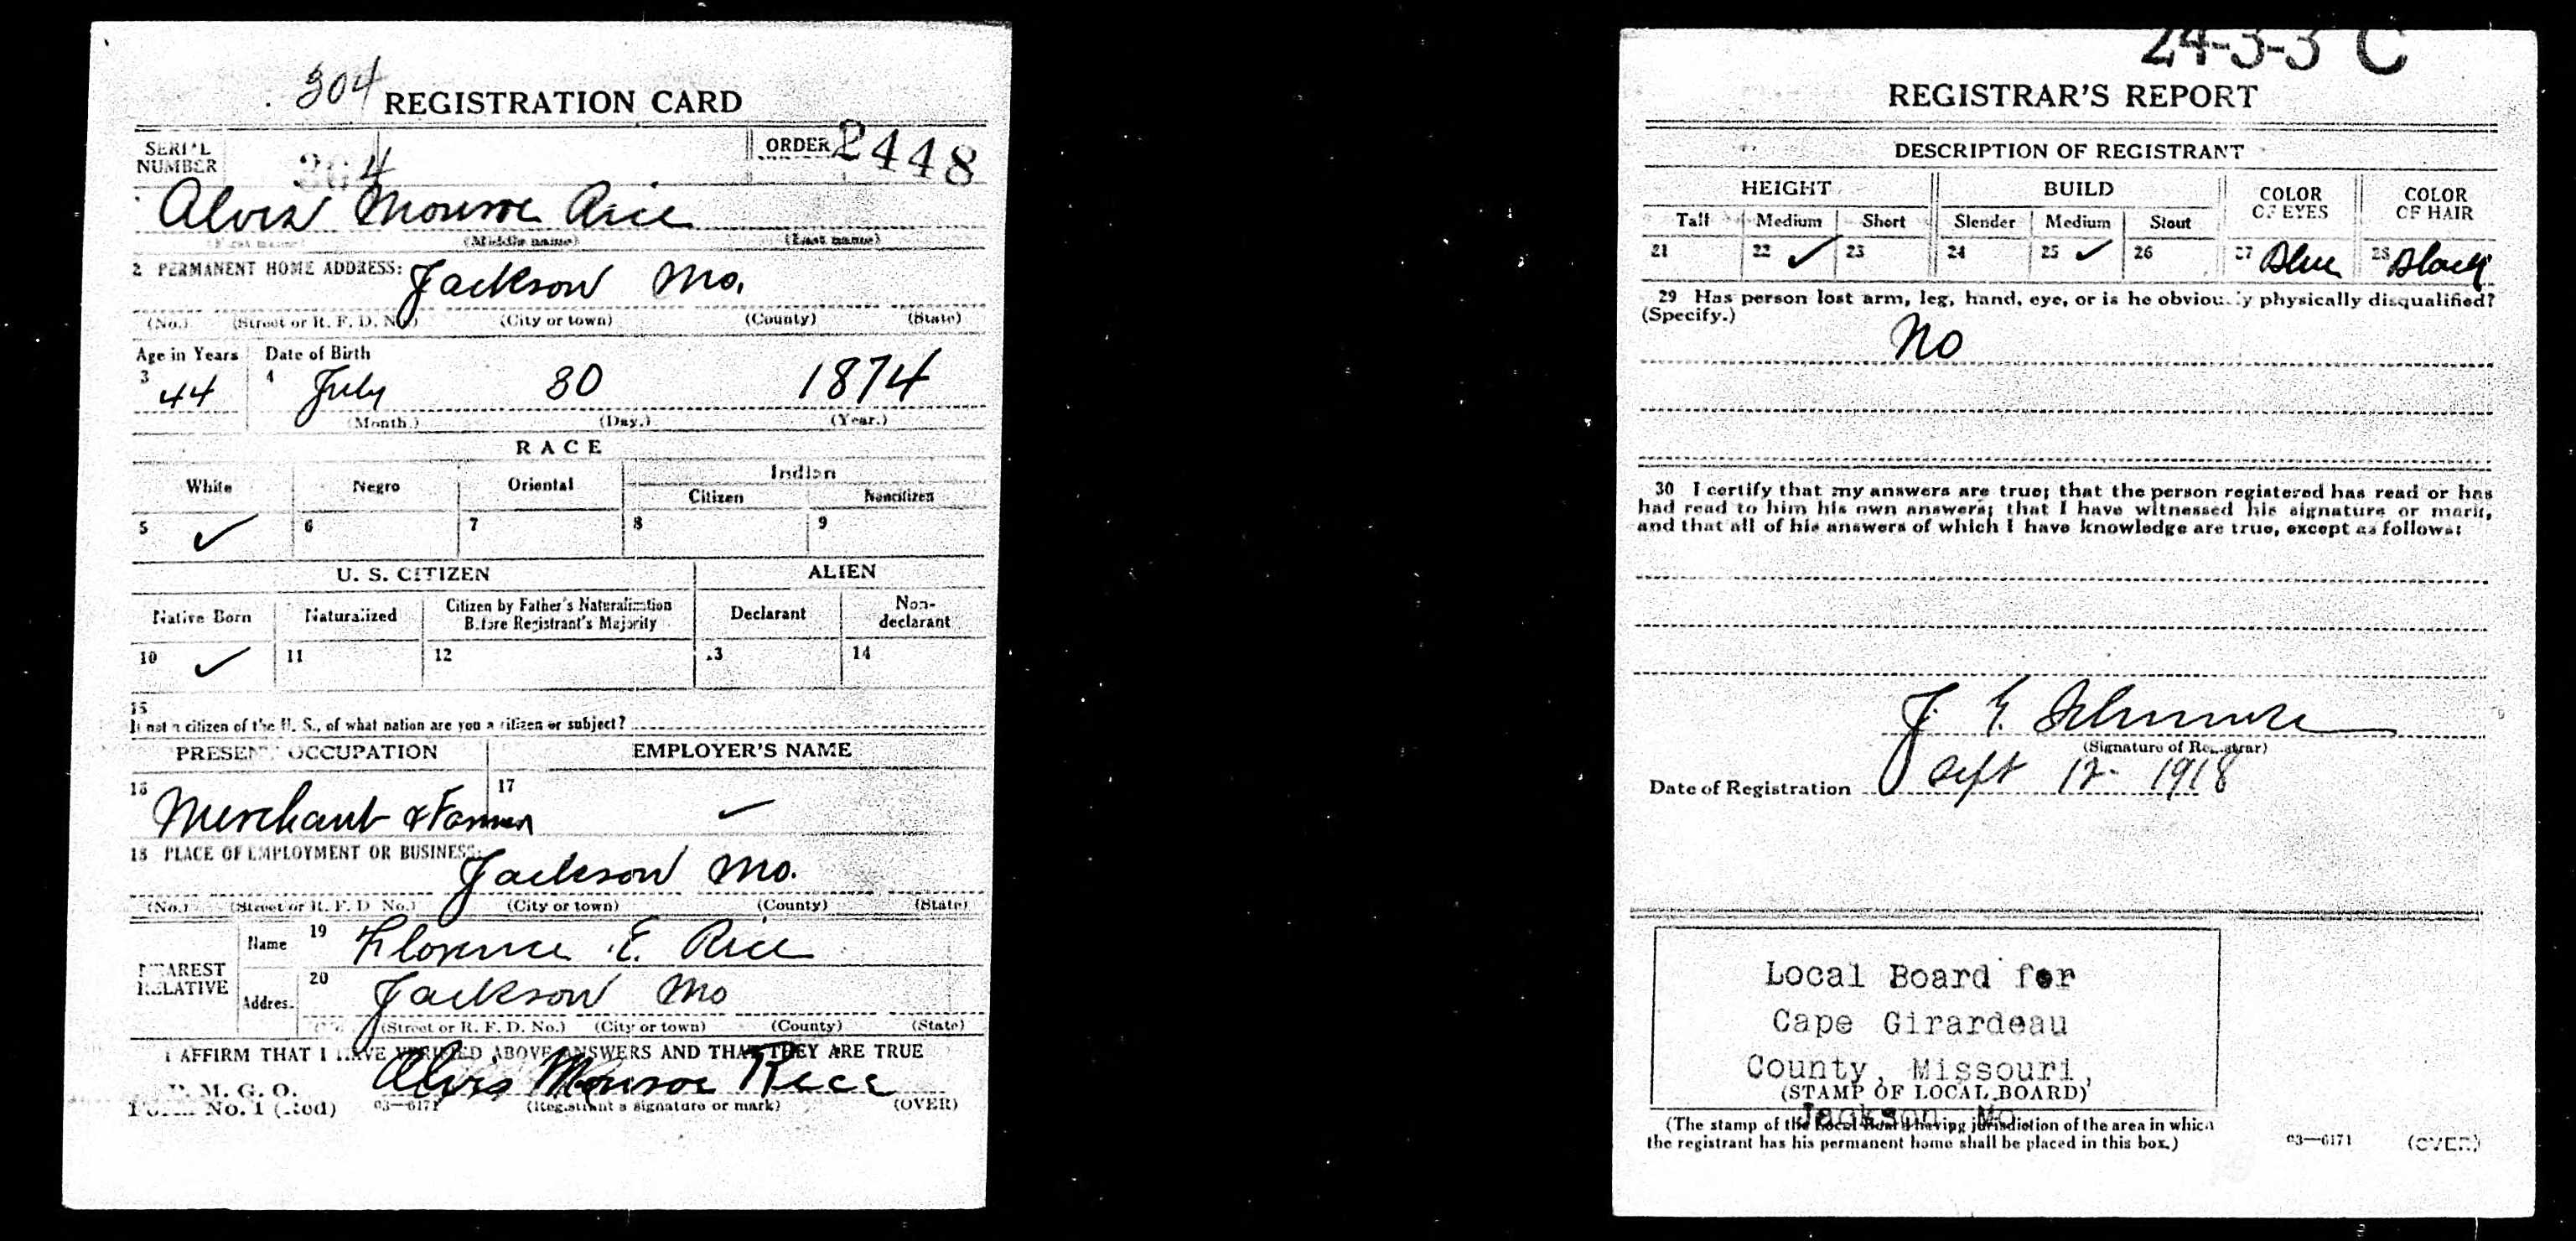 304 REGISTRATION CARD
SERIAL NUMBER 304 ORDER 2448
Alvis Monroe Rice
(First name) (Middle name) (Last name)
2 PERMANENT HOME ADDRESS: Jackson Mo.
(No.) (Street or R. F. D. No.) (City or town) (County) (State)
Age in Years Date of Birth
3 44 4 July 30 1874
(Month.) (Day.) (Year.)
RACE
White Negro Oriental Indian
Citizen Noncitizen
5 ✓ 6 7 8 9
U. S. CITIZEN ALIEN
Native Born Naturalized Citizen by Father's Naturalization Before Registrant's Majority Declarant Non-declarant
10 ✓ 11 12 13 14
15
If not a citizen of the U. S., of what nation are you a citizen or subject?
PRESENT OCCUPATION EMPLOYER'S NAME
16 Merchant & Farmer 17 ✓
18 PLACE OF EMPLOYMENT OR BUSINESS: Jackson Mo.
(No.) (Street or R. F. D. No.) (City or town) (County) (State)
NEAREST RELATIVE
Name 19 Florence E. Rice
Address 20 Jackson Mo
(No.) (Street or R. F. D. No.) (City or town) (County) (State)
I AFFIRM THAT I HAVE VERIFIED ABOVE ANSWERS AND THAT THEY ARE TRUE
P. M. G. O.
Form No. 1 (Red) 03—6171 Alvis Monroe Rice
(Registrant's signature or mark) (OVER)
24-3-3 C
REGISTRAR'S REPORT
DESCRIPTION OF REGISTRANT
HEIGHT BUILD COLOR OF EYES COLOR OF HAIR
Tall Medium Short Slender Medium Stout
21 22 ✓ 23 24 25 ✓ 26 27 Blue 28 Black
29 Has person lost arm, leg, hand, eye, or is he obviously physically disqualified?
(Specify.)
No
30 I certify that my answers are true; that the person registered has read or has
had read to him his own answers; that I have witnessed his signature or mark,
and that all of his answers of which I have knowledge are true, except as follows:
(Signature of Registrar)
Date of Registration Sept 12 - 1918
Local Board for
Cape Girardeau
County, Missouri,
(STAMP OF LOCAL BOARD)
Jackson, Mo
(The stamp of the Local Board having jurisdiction of the area in which
the registrant has his permanent home shall be placed in this box.)
03—6171 (OVER)